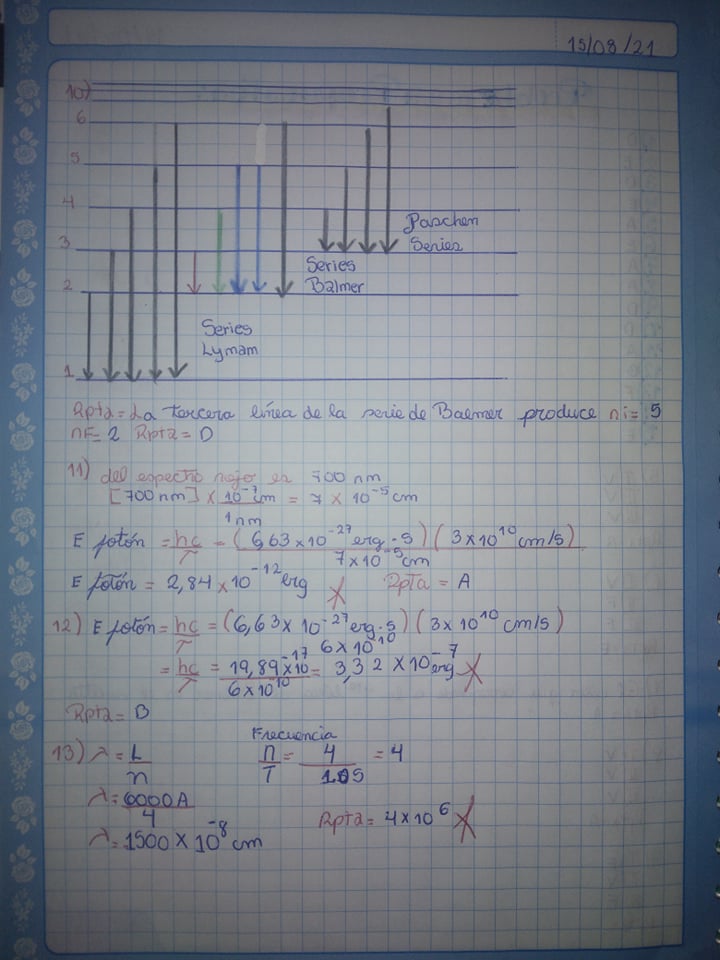 15/08/21
10)
6
5
4
3
2
1
Paschen
Series
Series
Balmer
Series
Lymam
Rpta = La tercera linea de la serie de Baemer produce ni = 5
nF = 2 Rpta = D
11) del espectro rojo es 700 nm
[700 nm] × 10⁻⁷ cm / 1 nm = 7 × 10⁻⁵ cm
E fotón = hc / T = (6,63 × 10⁻²⁷ erg · s) (3 × 10¹⁰ cm/s) / 7 × 10⁻⁵ cm
E fotón = 2,84 × 10⁻¹² erg X Rpta = A
12) E fotón = hc / T = (6,63 × 10⁻²⁷ erg · s) (3 × 10¹⁰ cm/s) / 6 × 10¹⁰
= hc / T = 19,89 × 10⁻¹⁷ / 6 × 10¹⁰ = 3,32 × 10⁻⁷ erg X
Rpta = B
Frecuencia
13) λ = L / n n / T = 4 / 10s = 4
λ = 6000A / 4
Rpta = 4 × 10⁶ X
λ = 1500 × 10⁻⁸ cm